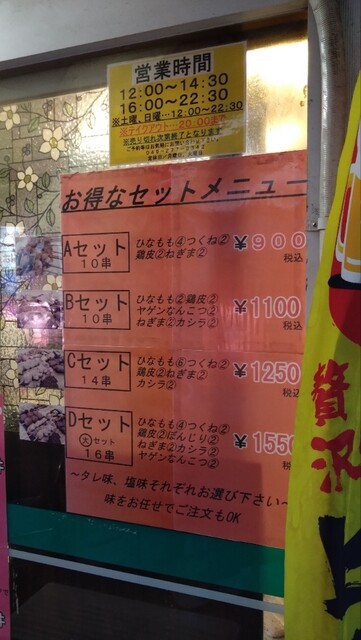 営業時間
12:00～14:30
16:00～22:30
※土曜、日曜…12:00～22:30
※テイクアウト…20:00まで
※売り切れ次第終了となります
お得なセットメニュー
Aセット
10串
ひなもも④つくね②
鶏皮②ねぎま②
¥900
税込
Bセット
10串
ひなもも②鶏皮②
ヤゲンなんこつ②
ねぎま②カシラ②
¥1100
税込
Cセット
14串
ひなもも⑥つくね②
鶏皮②ねぎま②
カシラ②
¥1250
税込
Dセット
大セット
16串
ひなもも④つくね②
鶏皮②ぼんじり②
ねぎま②カシラ②
ヤゲンなんこつ②
¥1550
税込
～タレ味、塩味それぞれお選び下さい～
味をお任せでご注文もOK
贅沢